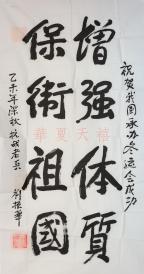 祝贺我国承办冬运会成功
增强体质
保衛祖國
乙未年深秋抗战老兵
劉振華
華夏天禧